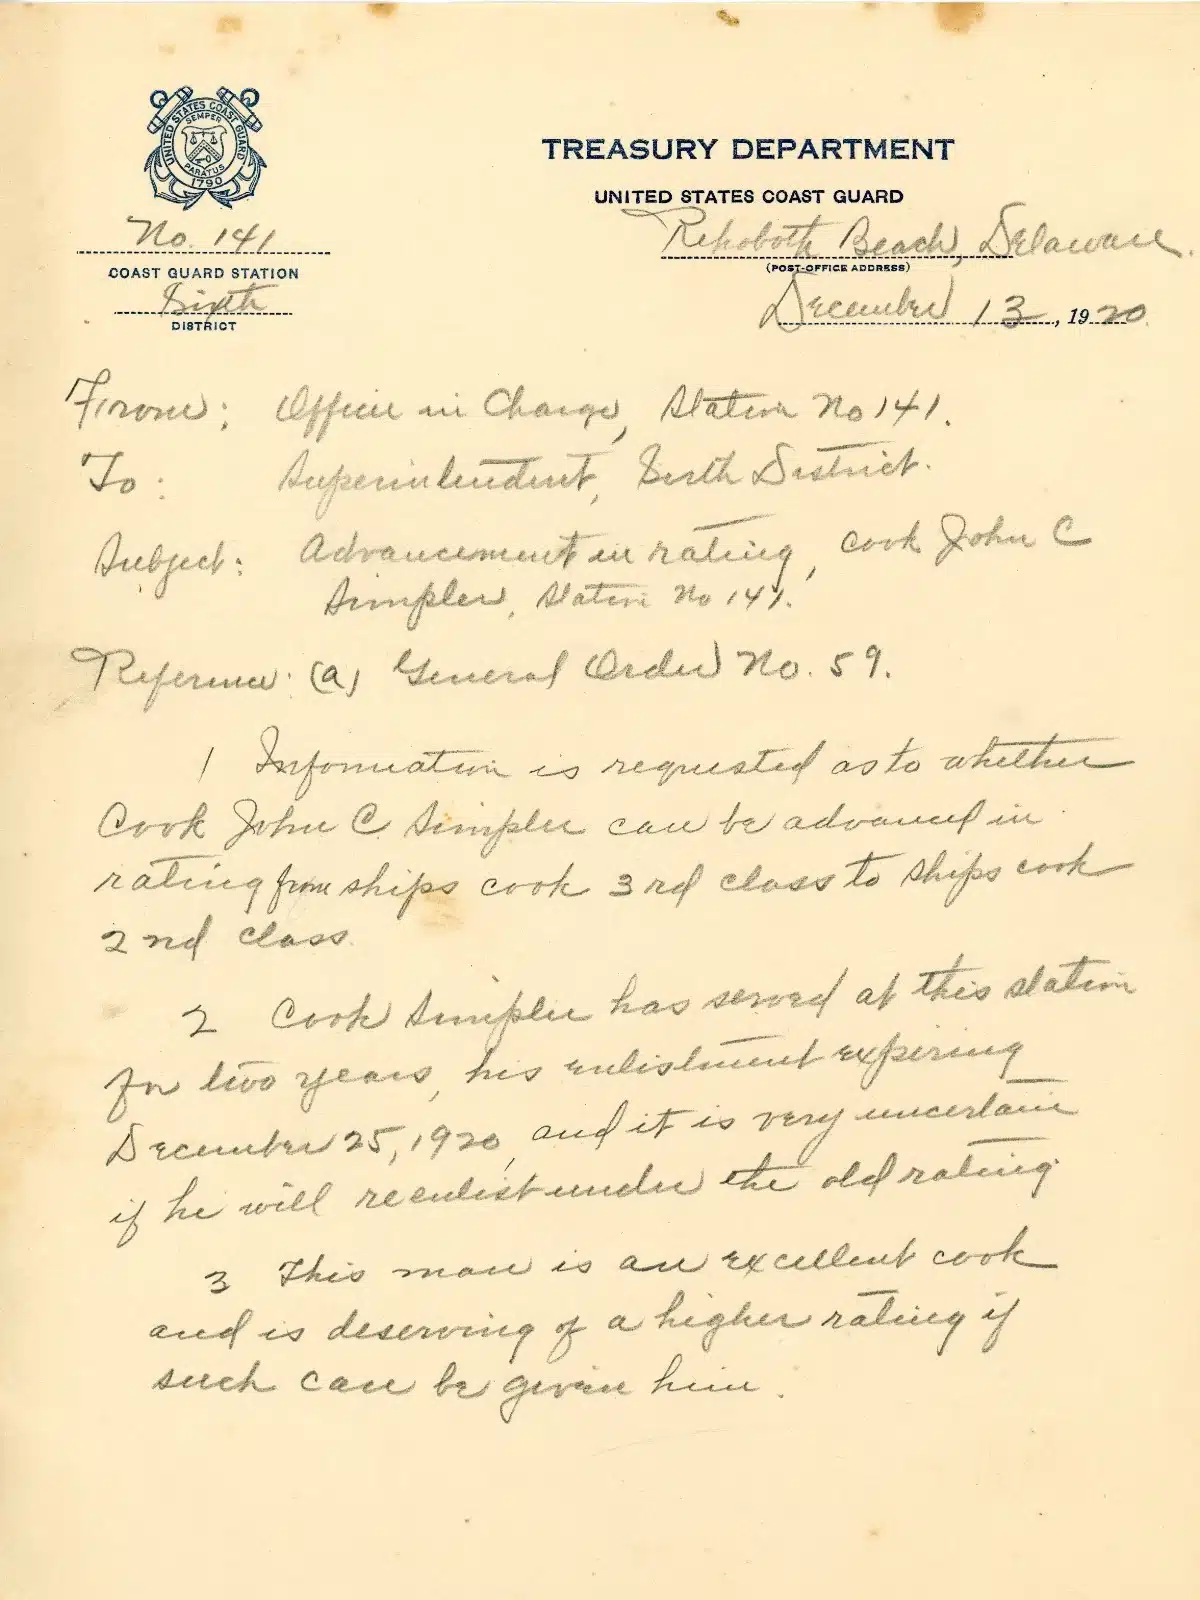 UNITED STATES COAST GUARD
SEMPER
PARATUS
1790
TREASURY DEPARTMENT
UNITED STATES COAST GUARD
No. 141
COAST GUARD STATION
Sixth
DISTRICT
Rehoboth Beach, Delaware.
(POST-OFFICE ADDRESS)
December 13, 1920.
From: Officer in Charge, Station No 141.
To: Superintendent, Sixth District.
Subject: Advancement in rating, cook John C
Simpler, Station No 141.
Reference: (a) General Order No. 59.
1 Information is requested as to whether
Cook John C. Simpler can be advanced in
rating from ships cook 3rd class to ships cook
2nd class.
2 Cook Simpler has served at this station
for two years, his enlistment expiring
December 25, 1920, and it is very uncertain
if he will reenlist under the old rating.
3 This man is an excellent cook
and is deserving of a higher rating if
such can be given him.